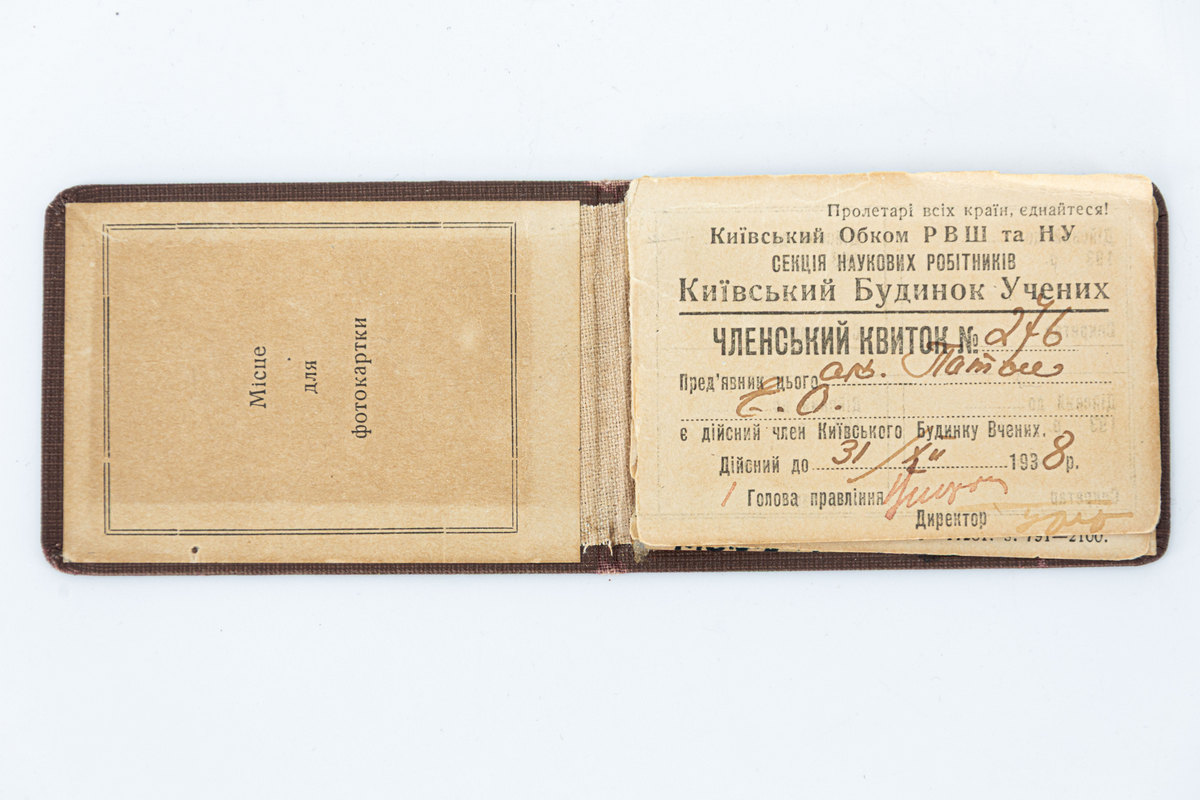 Місце
для
фотокартки
Пролетарі всіх країн, єднайтеся!
Київський Обком РВШ та НУ
СЕКЦІЯ НАУКОВИХ РОБІТНИКІВ
Київський Будинок Учених
ЧЛЕНСЬКИЙ КВИТОК № 276
Пред'явник цього ак. Патон
Є. О.
є дійсний член Київського Будинку Вчених.
Дійсний до 31/XII 1938 р.
Голова правління
Директор
791—2100.